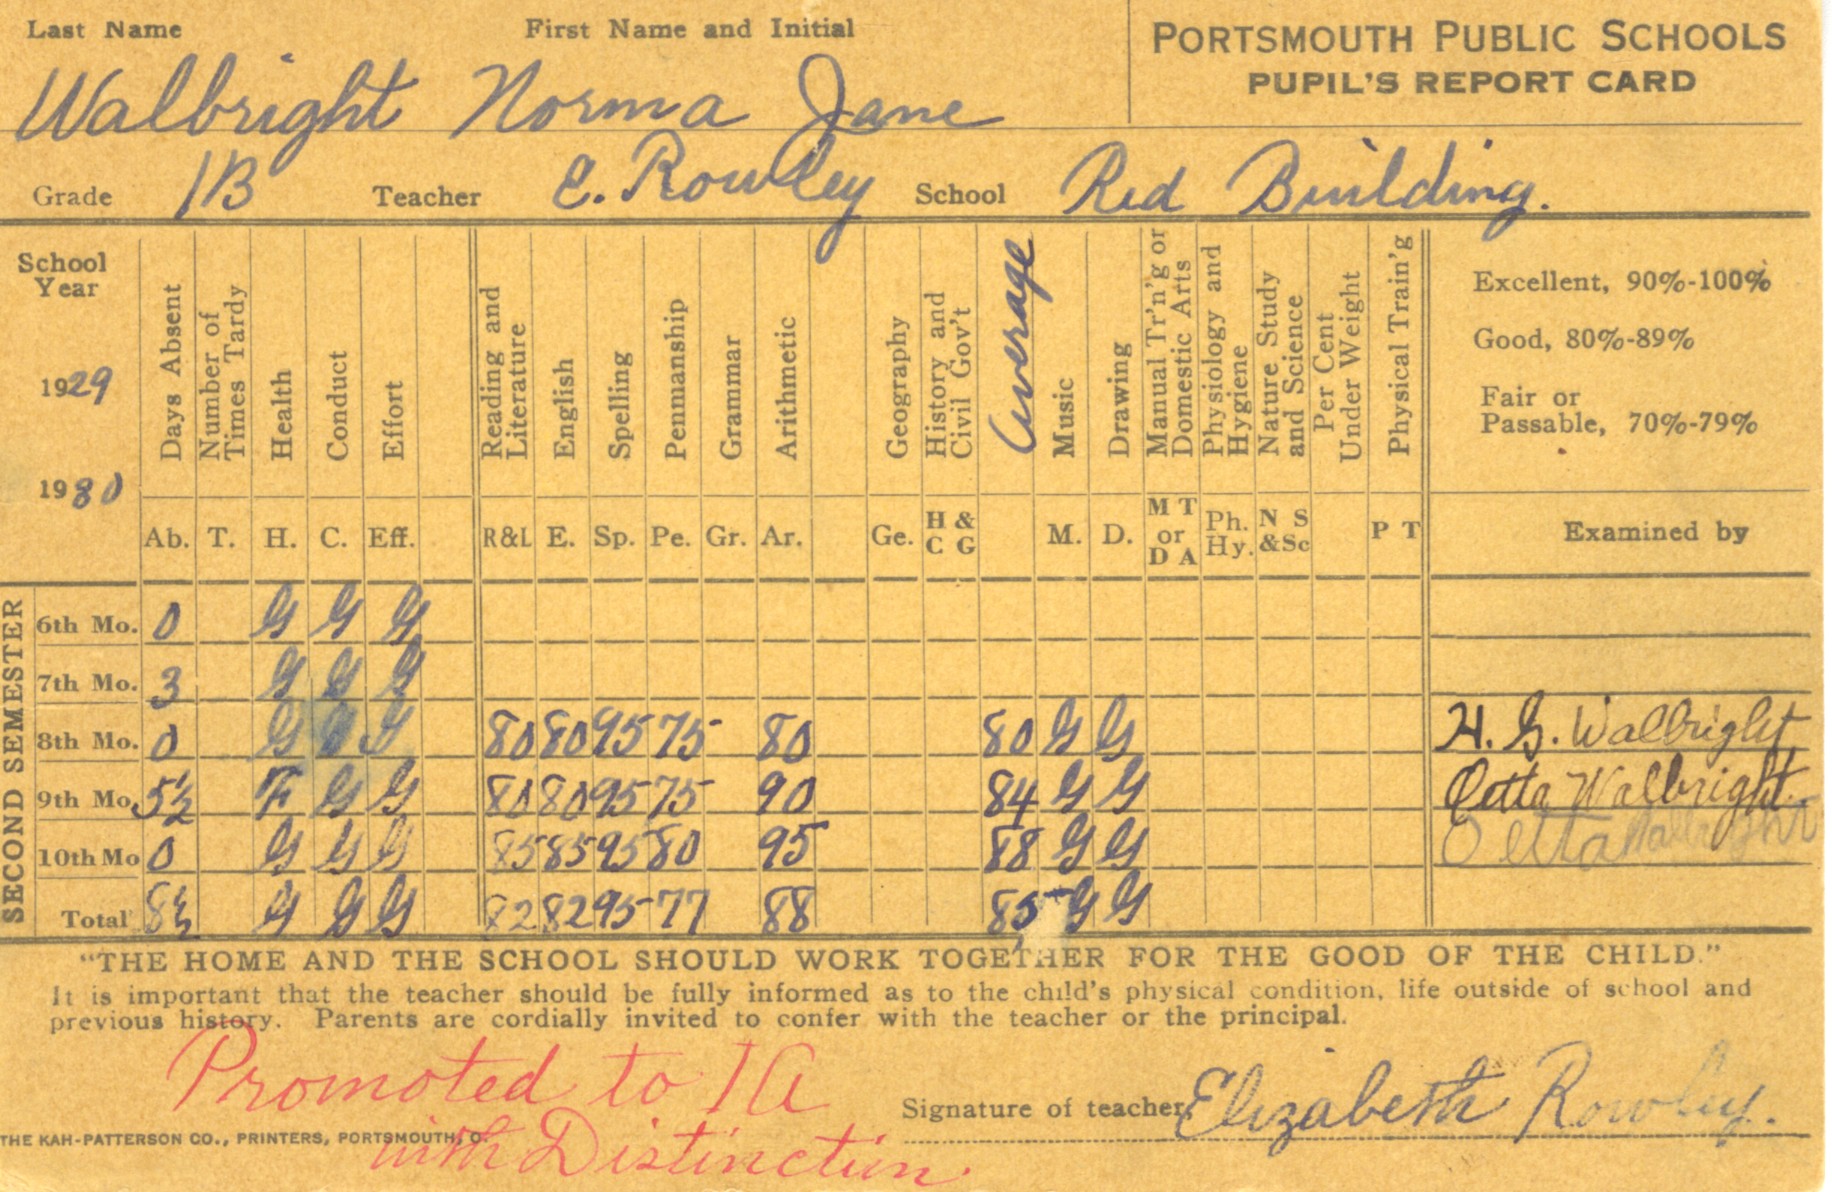 Last Name First Name and Initial PORTSMOUTH PUBLIC SCHOOLS
Walbright Norma Jane PUPIL'S REPORT CARD
Grade 1B Teacher E. Rowley School Red Building.
School Year
1929
1930
Days Absent
Number of Times Tardy
Health
Conduct
Effort
Reading and Literature
English
Spelling
Penmanship
Grammar
Arithmetic
Geography
History and Civil Gov't
Average
Music
Drawing
Manual Tr'n'g or Domestic Arts
Physiology and Hygiene
Nature Study and Science
Per Cent Under Weight
Physical Train'g
Excellent, 90%-100%
Good, 80%-89%
Fair or
Passable, 70%-79%
Ab. T. H. C. Eff. R&L E. Sp. Pe. Gr. Ar. Ge. H & C G M. D. M T or D A Ph. Hy. N S &Sc P T Examined by
SECOND SEMESTER
6th Mo. 0 G G G
7th Mo. 3 G G G
8th Mo. 0 G G 80 80 95 75 80 80 G G H. G. Walbright
9th Mo. 5½ F G G 80 80 95 75 90 84 G G Oetta Walbright.
10th Mo 0 G G G 85 85 95 80 95 88 G G Oetta Walbright
Total 8½ G G G 82 82 95 77 88 85 G G
"THE HOME AND THE SCHOOL SHOULD WORK TOGETHER FOR THE GOOD OF THE CHILD."
It is important that the teacher should be fully informed as to the child's physical condition, life outside of school and
previous history. Parents are cordially invited to confer with the teacher or the principal.
Promoted to 1A
with Distinction.
Signature of teacher Elizabeth Rowley.
THE KAH-PATTERSON CO., PRINTERS, PORTSMOUTH, O.